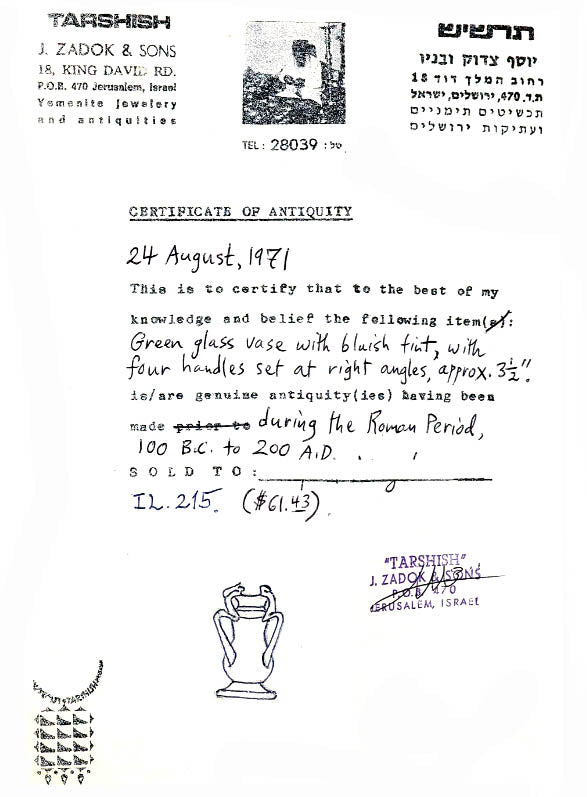 TARSHISH
J. ZADOK & SONS
18, KING DAVID RD.
P.O.B. 470 Jerusalem, Israel
Yemenite jewelery
and antiquities
תרשיש
יוסף צדוק ובניו
רחוב המלך דוד 18
ת.ד. 470, ירושלים, ישראל
תכשיטים תימניים
ועתיקות ירושלים
TEL: 28039 :טל
CERTIFICATE OF ANTIQUITY
24 August, 1971
This is to certify that to the best of my
knowledge and belief the following item(s):
Green glass vase with bluish tint, with
four handles set at right angles, approx. 3½".
is/are genuine antiquity(ies) having been
made prior to during the Roman Period,
100 B.C. to 200 A.D.
SOLD TO:
IL. 215. ($61.43)
"TARSHISH"
J. ZADOK & SONS
P.O.B. 470
JERUSALEM, ISRAEL
TARSHISH